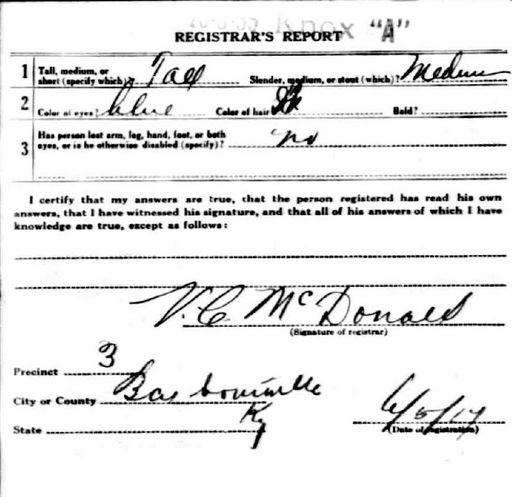 Knox "A"
REGISTRAR'S REPORT
1 Tall, medium, or short (specify which)? Tall Slender, medium, or stout (which)? Medium
2 Color of eyes? blue Color of hair Bald?
3 Has person lost arm, leg, hand, foot, or both eyes, or is he otherwise disabled (specify)? no
I certify that my answers are true, that the person registered has read his own
answers, that I have witnessed his signature, and that all of his answers of which I have
knowledge are true, except as follows:
V. C. McDonald
(Signature of registrar)
Precinct 3
City or County Barbourville
State Ky 6/5/17
(Date of registration)